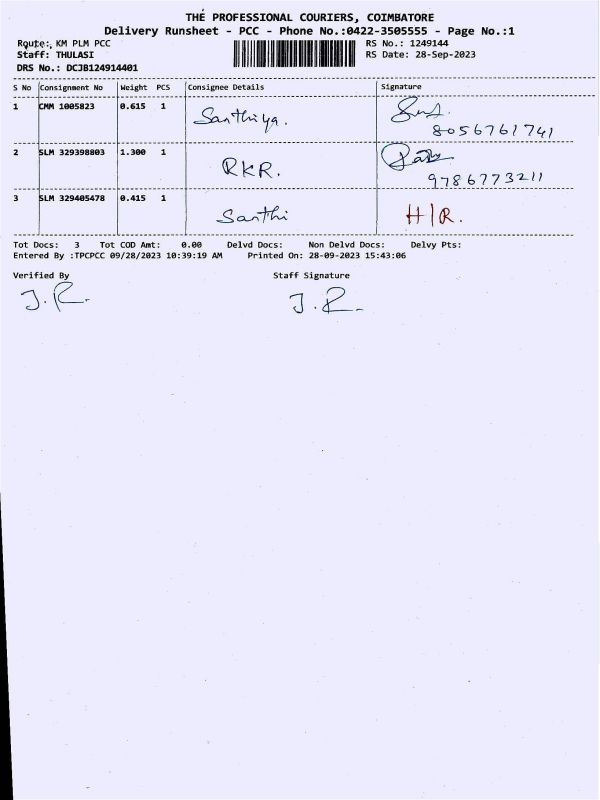 THE PROFESSIONAL COURIERS, COIMBATORE
Delivery Runsheet - PCC - Phone No.:0422-3505555 - Page No.:1
Route: KM PLM PCC
RS No.: 1249144
Staff: THULASI
RS Date: 28-Sep-2023
DRS No.: DCJB124914401
S No Consignment No Weight PCS Consignee Details Signature
1 CMM 1005823 0.615 1 Santhiya.
8056761741
2 SLM 329398803 1.300 1 RKR.
9786773211
3 SLM 329405478 0.415 1 Santhi H/R.
Tot Docs: 3 Tot COD Amt: 0.00 Delvd Docs: Non Delvd Docs: Delvy Pts:
Entered By :TPCPCC 09/28/2023 10:39:19 AM Printed On: 28-09-2023 15:43:06
Verified By Staff Signature
J.R. J.R.